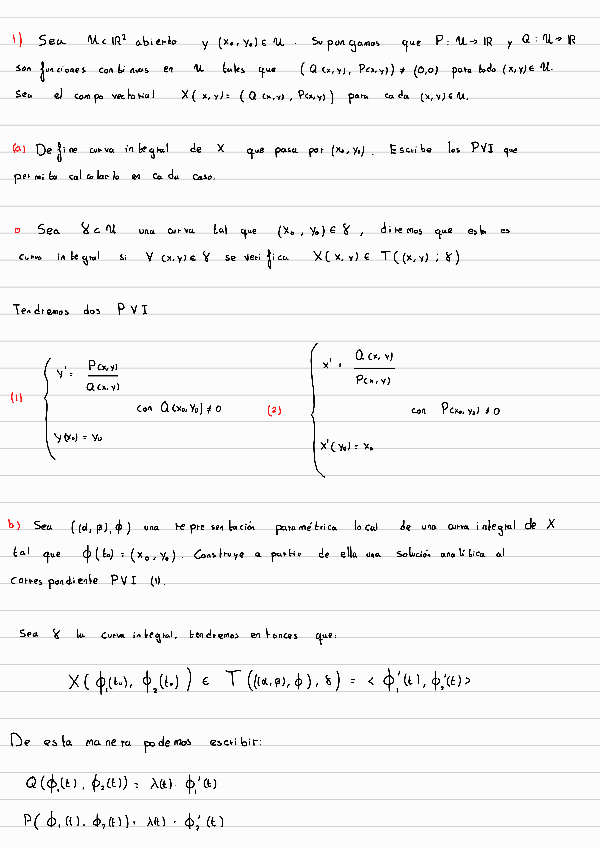 1) Sea U ⊂ ℝ² abierto y (x₀, y₀) ∈ U. Supongamos que P: U → ℝ y Q: U → ℝ
son funciones continuas en U tales que (Q(x,y), P(x,y)) ≠ (0,0) para todo (x,y) ∈ U.
Sea el campo vectorial X(x,y) = (Q(x,y), P(x,y)) para cada (x,y) ∈ U.
(a) Define curva integral de X que pasa por (x₀, y₀). Escribe los PVI que
permita calcularla en cada caso.
o Sea γ ⊂ U una curva tal que (x₀, y₀) ∈ γ, diremos que esta es
curva integral si ∀ (x,y) ∈ γ se verifica X(x,y) ∈ T((x,y); γ)
Tendremos dos PVI
(1) { y' = P(x,y) / Q(x,y) con Q(x₀, y₀) ≠ 0 (2) { x' = Q(x,y) / P(x,y) con P(x₀, y₀) ≠ 0
y(x₀) = y₀ x'(y₀) = x₀
b) Sea ((α, β), ϕ) una representación paramétrica local de una curva integral de X
tal que ϕ(t₀) = (x₀, y₀). Construye a partir de ella una solución analítica al
correspondiente PVI (1).
Sea γ la curva integral, tendremos entonces que:
X(ϕ₁(t₀), ϕ₂(t₀)) ∈ T(((α, β), ϕ), γ) = < ϕ₁'(t), ϕ₂'(t) >
De esta manera podemos escribir:
Q(ϕ₁(t), ϕ₂(t)) = λ(t) · ϕ₁'(t)
P(ϕ₁(t), ϕ₂(t)) = λ(t) · ϕ₂'(t)